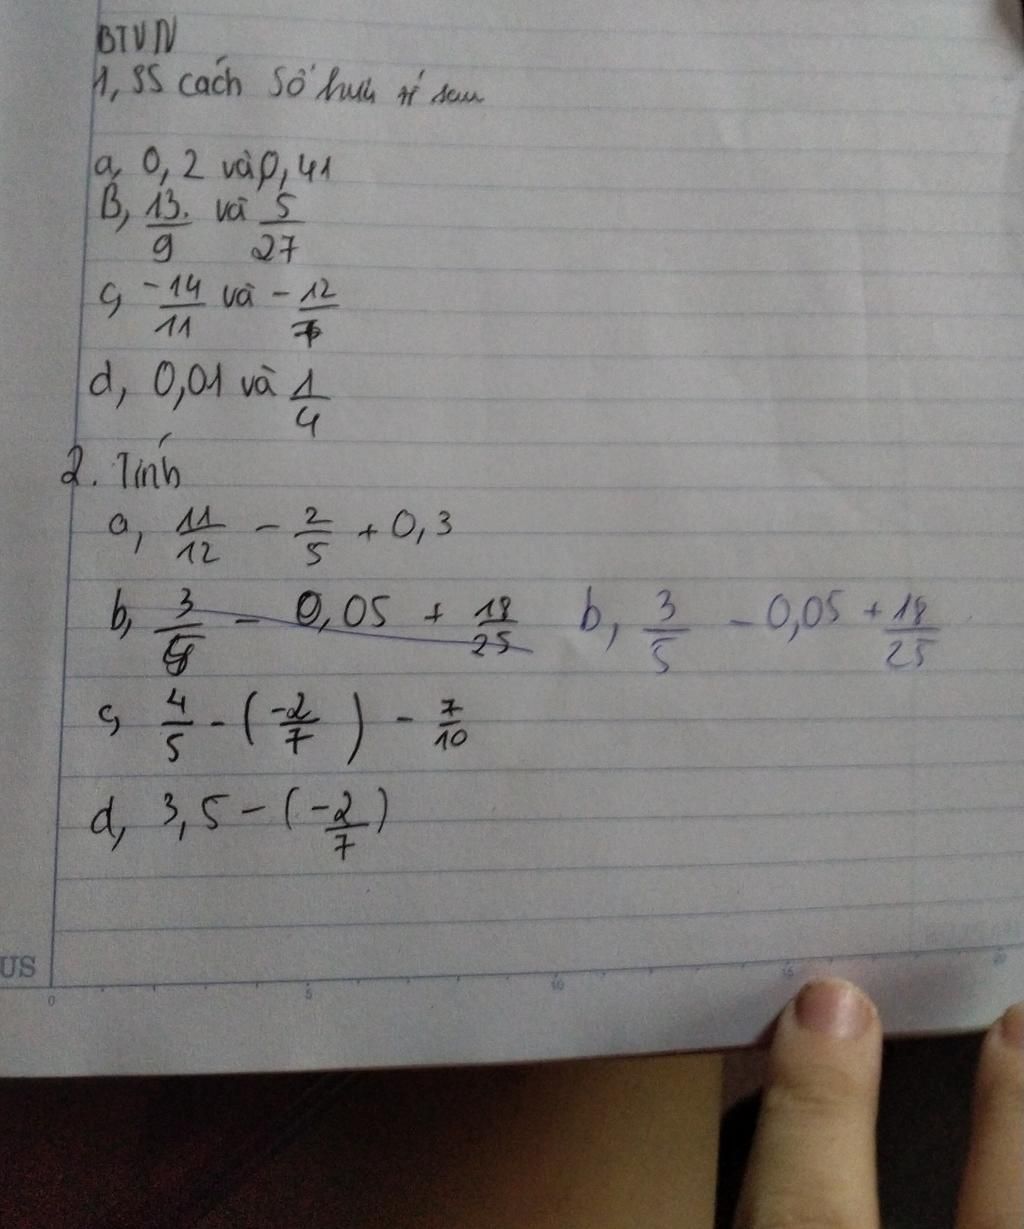 BTVN
1, SS cách số hữu tỉ sau
a, 0,2 và 0,41
B, 13/9 và 5/27
c, -14/11 và -12/7
d, 0,01 và 1/4
2. Tính
a, 11/12 - 2/5 + 0,3
b, 3/5 - 0,05 + 18/25 b, 3/5 - 0,05 + 18/25
c, 4/5 - (-2/7) - 7/10
d, 3,5 - (-2/7)
US
0 5 10 15 20